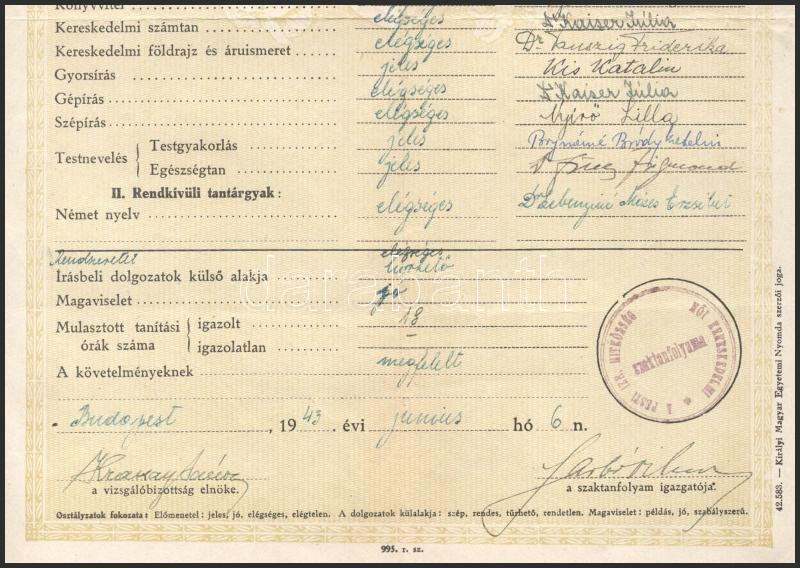 Könyvvitel elégséges
Kereskedelmi számtan elégséges Dr Kaiser Júlia
Kereskedelmi földrajz és áruismeret elégséges Dr. Friderika
Gyorsírás jeles Kis Katalin
Gépírás elégséges Dr Kaiser Júlia
Szépírás elégséges Nyirő Lilla
Testnevelés { Testgyakorlás jeles Bródy Katalin
Egészségtan jeles Dr Zsigmond
II. Rendkívüli tantárgyak:
Német nyelv elégséges Dr. Móses Erzsébet
Rendszeretet elégséges
Írásbeli dolgozatok külső alakja tűrhető
Magaviselet jó
Mulasztott tanítási órák száma { igazolt 18
igazolatlan —
A követelményeknek megfelelt
Budapest, 1943. évi június hó 6 n.
a vizsgálóbizottság elnöke.
a szaktanfolyam igazgatója.
Osztályzatok fokozata: Előmenetel: jeles, jó, elégséges, elégtelen. A dolgozatok külalakja: szép, rendes, tűrhető, rendetlen. Magaviselet: példás, jó, szabályszerű.
995. r. sz.
42.583. — Királyi Magyar Egyetemi Nyomda szerzői joga.
A PESTI IZR. HITKÖZSÉG NŐI KERESKEDELMI
szaktanfolyama
darabanth